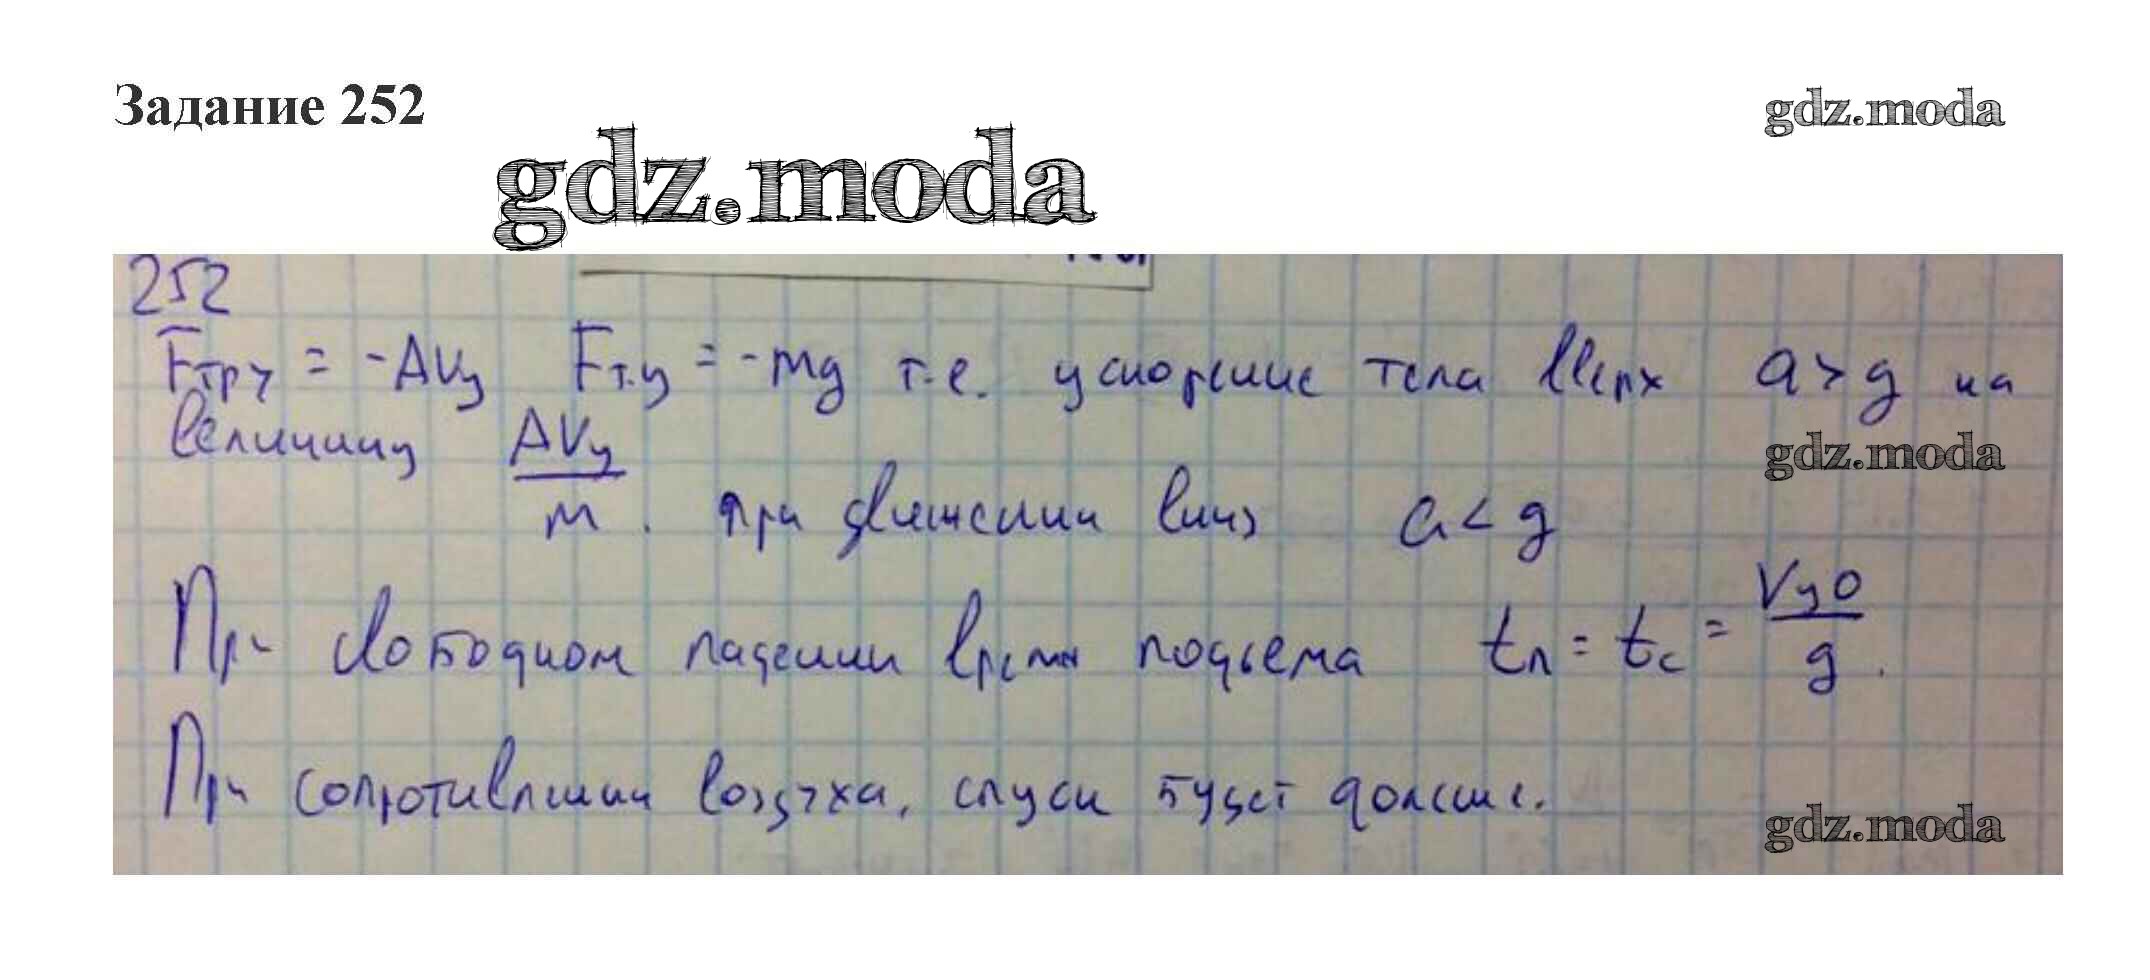 Задание 252
gdz.moda
gdz.moda
252
Fтр y = -AVy Fт.y = -mg т.е. ускорение тела вверх a > g на
величину AVy/m. при движении вниз a < g
gdz.moda
При свободном падении время подъема tп = tс = Vy0/g.
При сопротивлении воздуха, спуск будет дольше.
gdz.moda